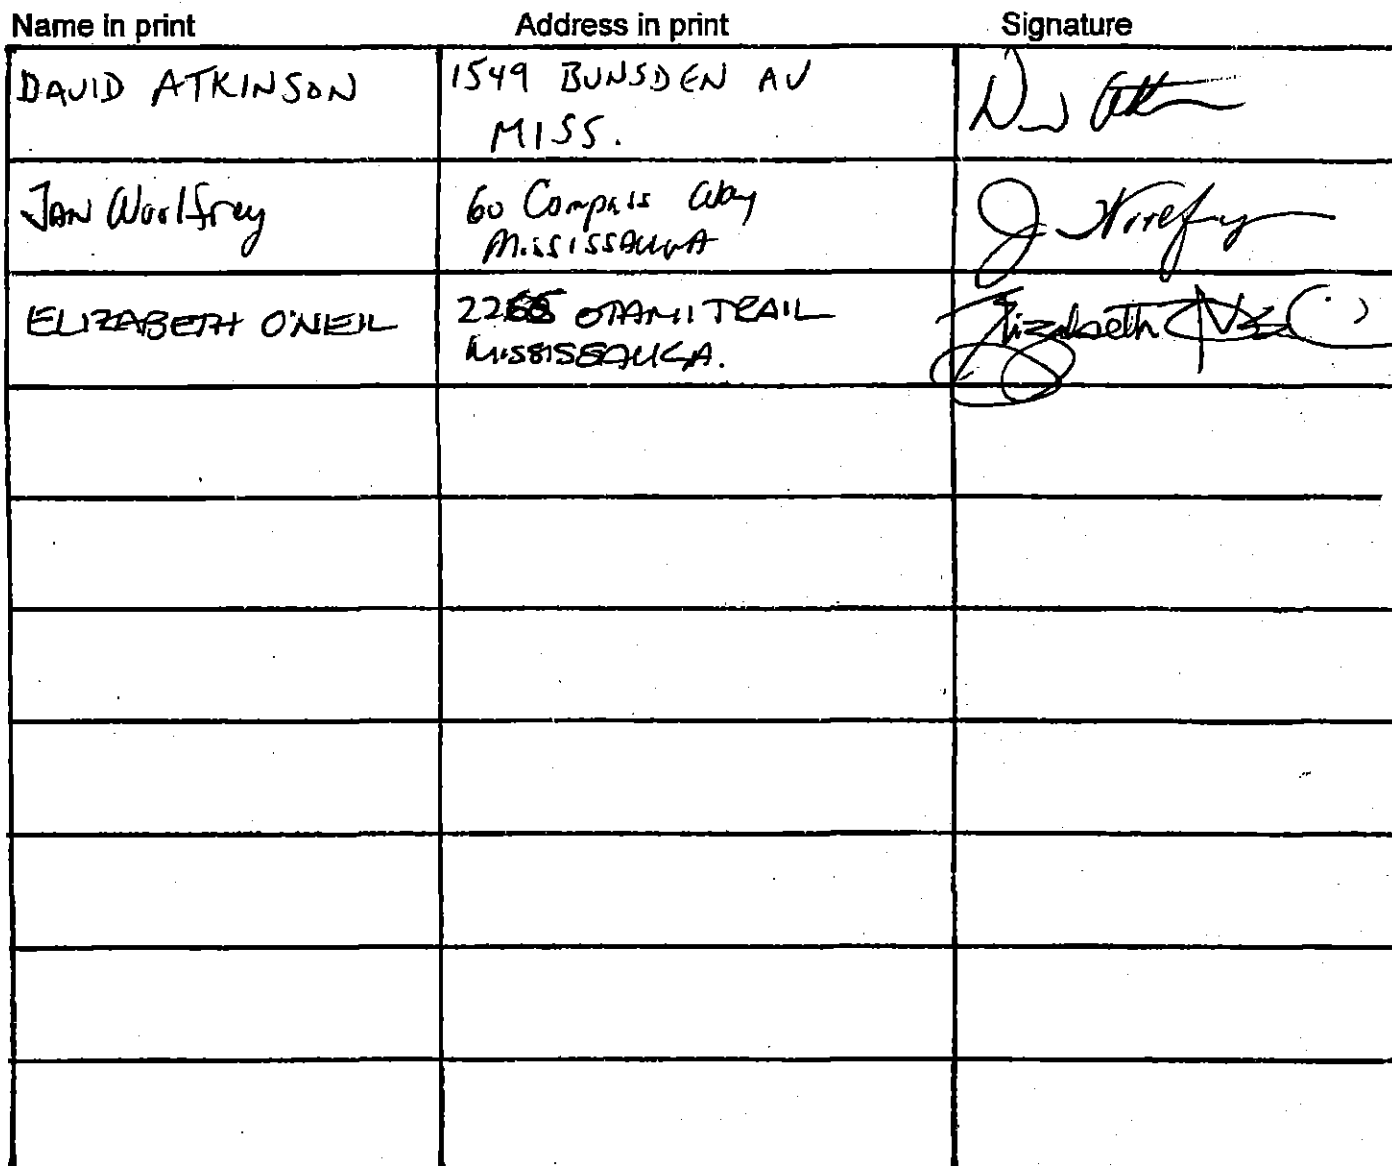 Name in print Address in print Signature
DAVID ATKINSON 1549 BUNSDEN AV
MISS.
JAN Woolfrey 60 Compass Way
MISSISSAUGA
ELIZABETH O'NEIL OTAMI TRAIL
MISSISSAUGA.
Elizabeth